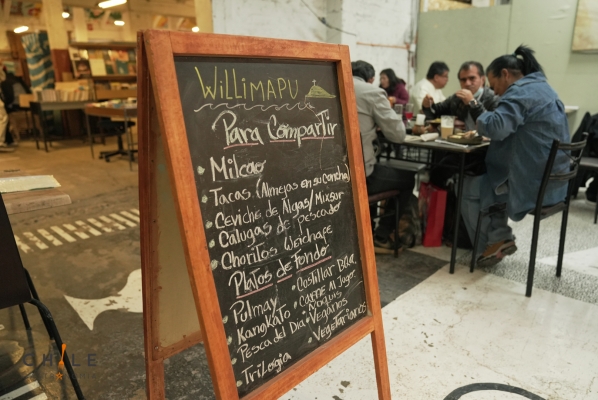 Willimapu
Para Compartir
• Milcao
• Tacas (Almejas en su concha)
• Ceviche de Algas/Mixsur
• Calugas de Pescador
• Choritos Weichape
Platos de Fondo
• Pulmay
• Kangkato
• Pesca del Dia
• Trilogia
• Costillar BBQ.
• Carne Al Jugo
• Ñoquis
• Vegarios
• Vegetarianos
CHILE